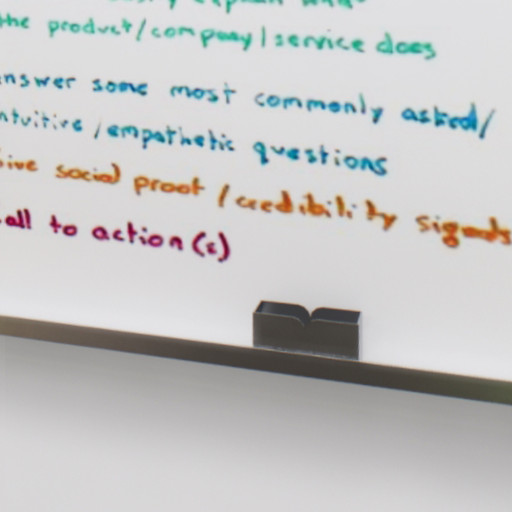 the product/company/service does
nswer some most commonly asked/
ntuitive/empathetic questions
ive social proof/credibility signals
all to action(s)